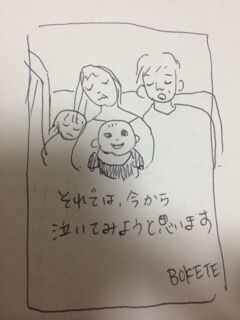 それでは、今から
泣いてみようと思います
BOKETE